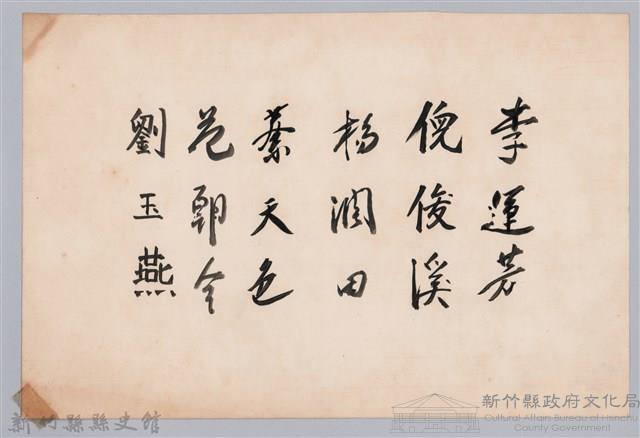 李運芳
倪俊溪
楊潤田
蔡天色
范朝全
劉玉燕
新竹縣縣史館
新竹縣政府文化局
Cultural Affairs Bureau of Hsinchu
County Government